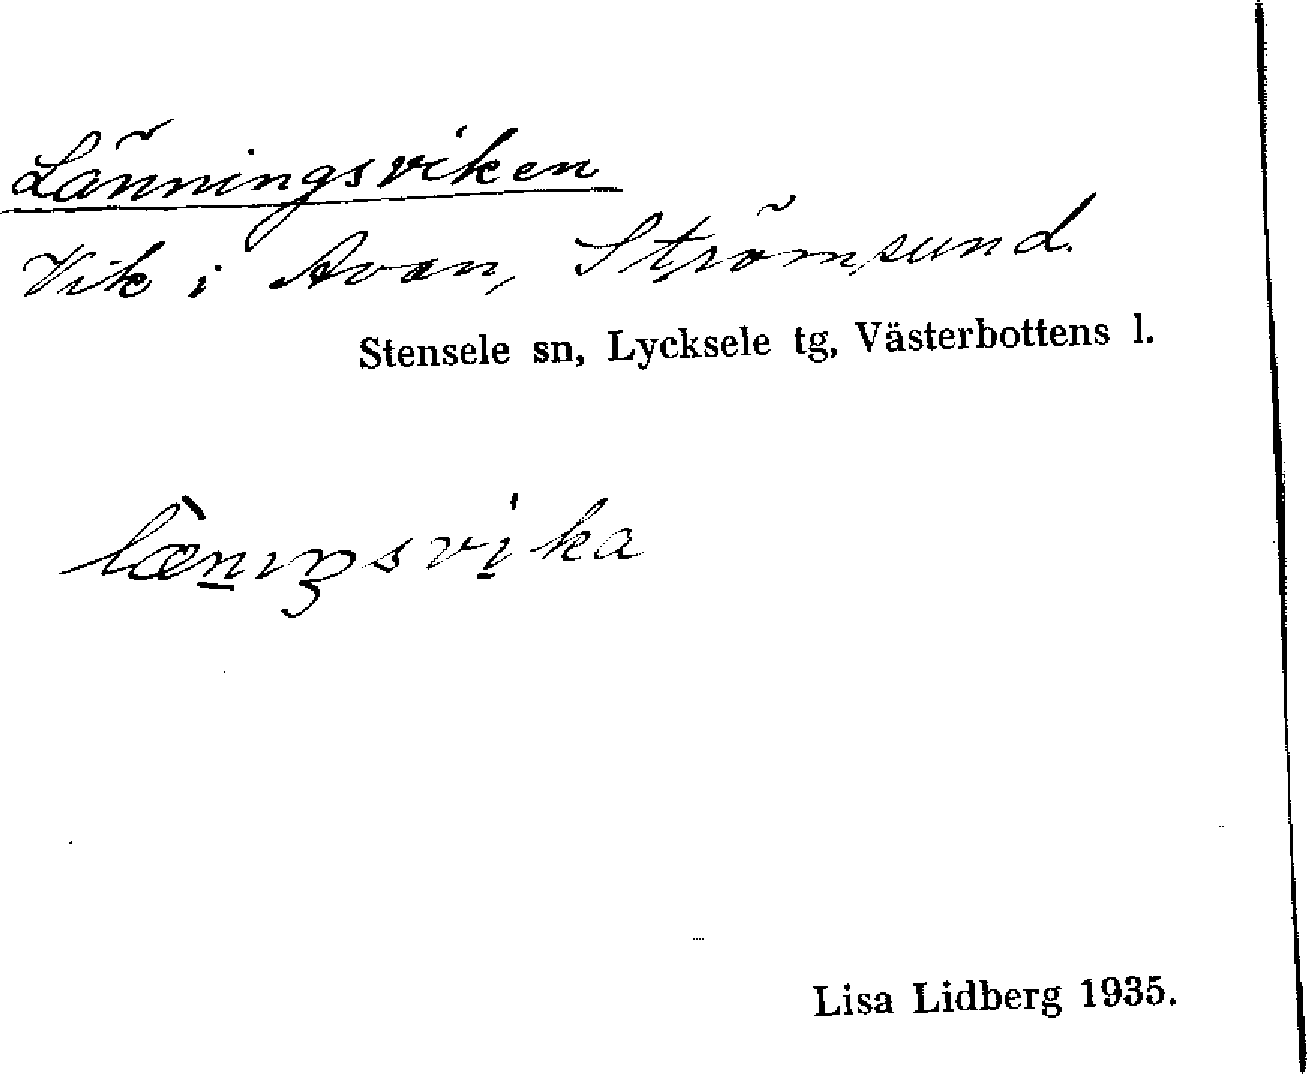 Länningsviken
Vik i Avan, Strömsund.
Stensele sn, Lycksele tg, Västerbottens l.
læ̀nıŋsvika
Lisa Lidberg 1935.